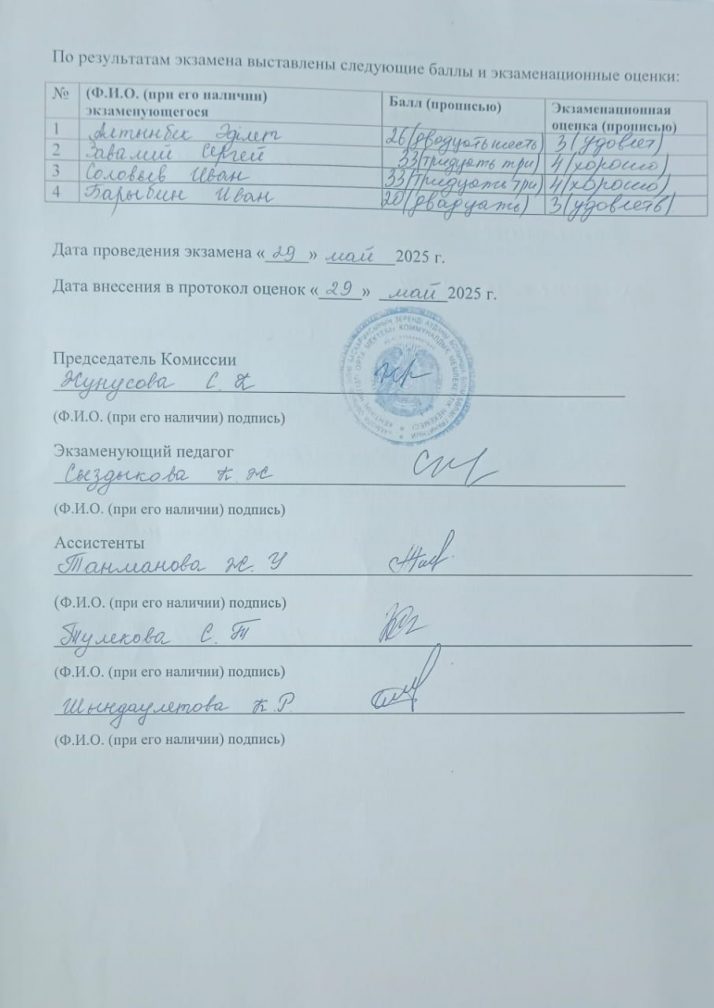 По результатам экзамена выставлены следующие баллы и экзаменационные оценки:
№ (Ф.И.О. (при его наличии) экзаменующегося Балл (прописью) Экзаменационная оценка (прописью)
1 Алтынбек Әділет 26(двадцать шесть) 3(удовлет)
2 Завалий Сергей 33(тридцать три) 4(хорошо)
3 Соловьев Иван 33(тридцать три) 4(хорошо)
4 Барыбин Иван 20(двадцать) 3(удовлетв)
Дата проведения экзамена «29» май 2025 г.
Дата внесения в протокол оценок «29» май 2025 г.
Председатель Комиссии
Жунусова С. К
(Ф.И.О. (при его наличии) подпись)
Экзаменующий педагог
Сыздыкова К. Ж
(Ф.И.О. (при его наличии) подпись)
Ассистенты
Танманова Ж. У
(Ф.И.О. (при его наличии) подпись)
Тулекова С. Т
(Ф.И.О. (при его наличии) подпись)
Шындаулетова К. Р.
(Ф.И.О. (при его наличии) подпись)